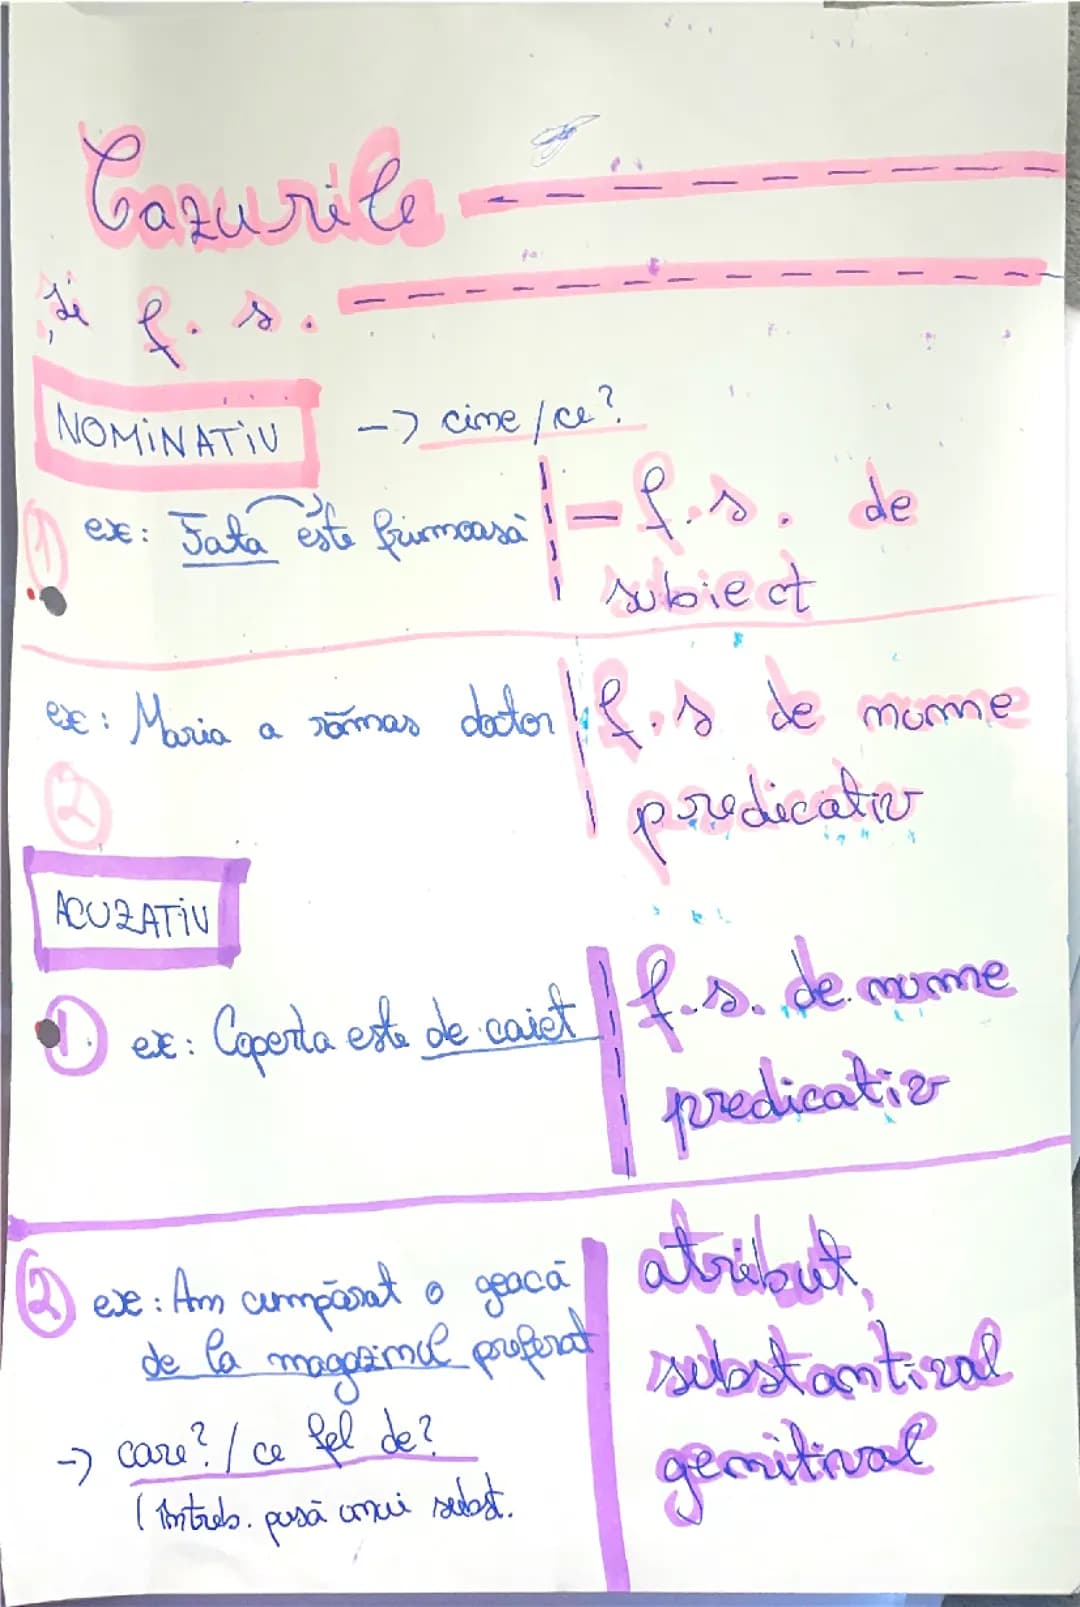 Cazurile
și f. s.
NOMINATIV -> cine / ce?
1 ex: Fata este frumoasă - f. s. de
subiect
ex: Maria a rămas doctor f. s de nume
2 predicativ
ACUZATIV
1 ex: Coperta este de caiet f. s. de nume
predicativ
2 ex: Am cumpărat o geacă atribut,
de la magazinul preferat substantival
-> care? / ce fel de? genitival
( Întreb. pusă unui subst.